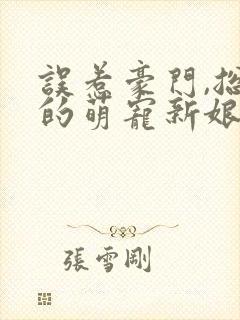 誤惹豪門,總
的萌寵新娘
張雪剛